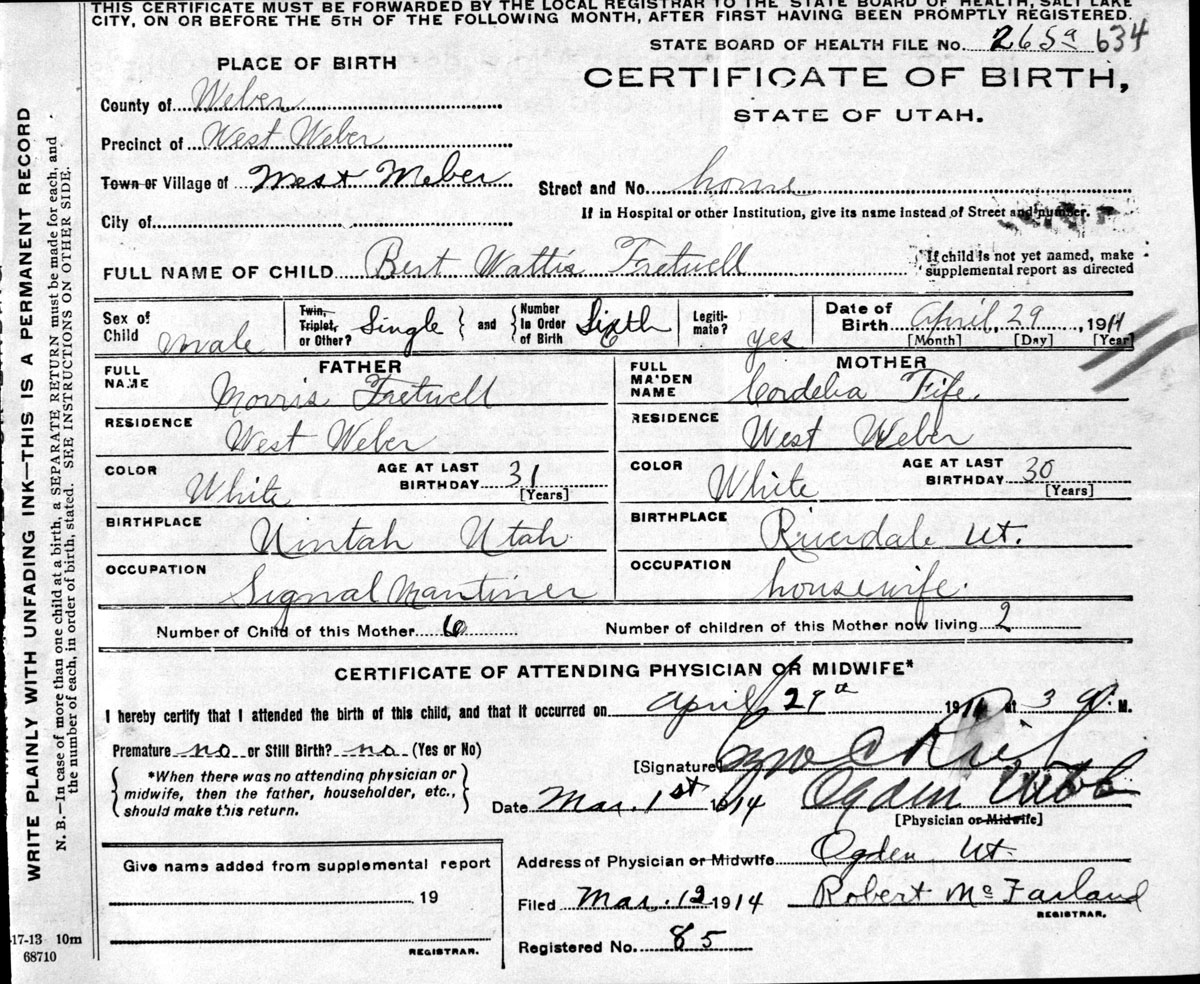 THIS CERTIFICATE MUST BE FORWARDED BY THE LOCAL REGISTRAR TO THE STATE BOARD OF HEALTH, SALT LAKE
CITY, ON OR BEFORE THE 5TH OF THE FOLLOWING MONTH, AFTER FIRST HAVING BEEN PROMPTLY REGISTERED.
STATE BOARD OF HEALTH FILE No. 265a 634
PLACE OF BIRTH
CERTIFICATE OF BIRTH,
STATE OF UTAH.
County of Weber
Precinct of West Weber
Town or Village of West Weber
Street and No. home
City of
If in Hospital or other Institution, give its name instead of Street and number.
FULL NAME OF CHILD Bert Wattis Fretwell
If child is not yet named, make supplemental report as directed
Sex of Child male
Twin, Triplet, or Other? Single and Number In Order of Birth Sixth
Legiti-mate? yes
Date of Birth April, 29, 1911
[Month] [Day] [Year]
FATHER
FULL NAME Morris Fretwell
RESIDENCE West Weber
COLOR White AGE AT LAST BIRTHDAY 31 [Years]
BIRTHPLACE Uintah Utah
OCCUPATION Signal Mantiner
MOTHER
FULL MAIDEN NAME Cordelia Fife.
RESIDENCE West Weber
COLOR White AGE AT LAST BIRTHDAY 30 [Years]
BIRTHPLACE Riverdale Ut.
OCCUPATION housewife.
Number of Child of this Mother 6 Number of children of this Mother now living 2
CERTIFICATE OF ATTENDING PHYSICIAN OR MIDWIFE*
I hereby certify that I attended the birth of this child, and that it occurred on April 29th 191 at 3 M.
Premature no or Still Birth? no (Yes or No)
*When there was no attending physician or midwife, then the father, householder, etc., should make this return.
[Signature]
Date Mar. 1st 1914 Ogden
[Physician or Midwife]
Give name added from supplemental report
19
REGISTRAR.
Address of Physician or Midwife Ogden Ut.
Filed Mar. 12 1914 Robert McFarland
REGISTRAR.
Registered No. 85
WRITE PLAINLY WITH UNFADING INK—THIS IS A PERMANENT RECORD
N. B.—In case of more than one child at a birth, a SEPARATE RETURN must be made for each, and
the number of each, in order of birth, stated. SEE INSTRUCTIONS ON OTHER SIDE.
-17-13 10m
68710